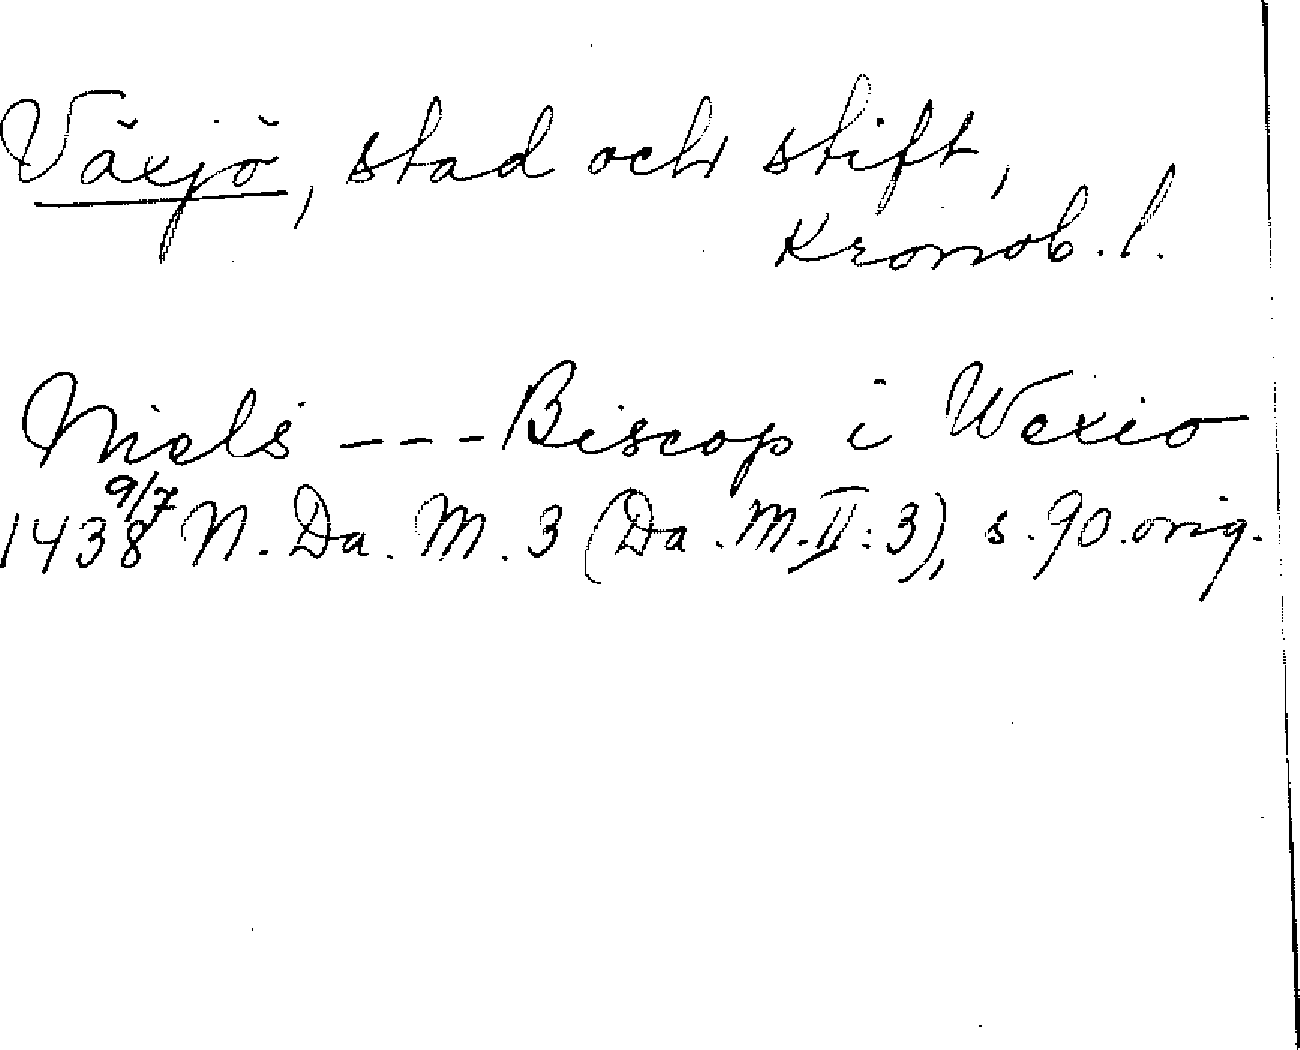 Växjö, stad och stift,
Kronob. l.
Niels --- Biscop i Wexio
1438 9/7 N. Da. M. 3 (Da. M. II: 3), s. 90. orig.